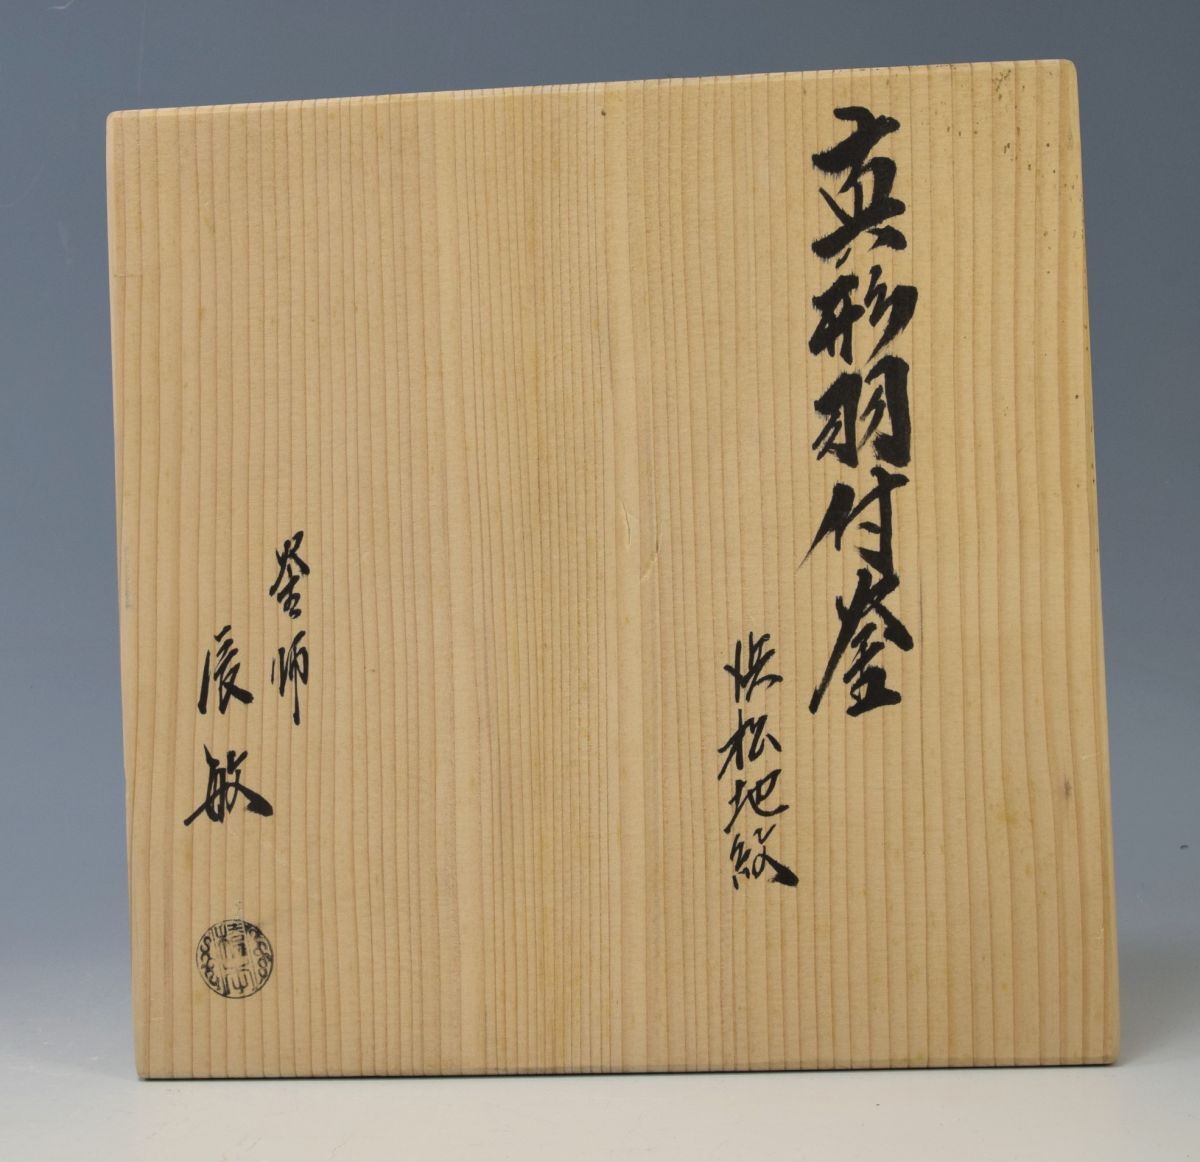 真形羽付釜
浜松地紋
釜師
辰敏